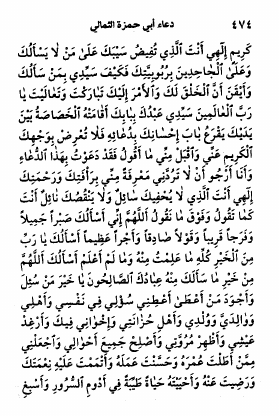 ٤٧٤ دعاء أبي حمزة الثمالي
كَرِيمُ إِلٰهِي أَنْتَ الَّذِي تُفِيضُ سَيْبَكَ عَلىٰ مَنْ لاٰ يَسْأَلُكَ
وَعَلَى الْجٰاحِدِينَ بِرُبُوبِيَّتِكَ فَكَيْفَ سَيِّدِي بِمَنْ سَأَلَكَ
وَأَيْقَنَ أَنَّ الْخَلْقَ لَكَ وَالْأَمْرَ إِلَيْكَ تَبٰارَكْتَ وَتَعٰالَيْتَ يٰا
رَبَّ الْعٰالَمِينَ سَيِّدِي عَبْدُكَ بِبٰابِكَ أَقٰامَتْهُ الْخَصٰاصَةُ بَيْنَ
يَدَيْكَ يَقْرَعُ بٰابَ إِحْسٰانِكَ بِدُعٰائِهِ فَلاٰ تُعْرِضْ بِوَجْهِكَ
الْكَرِيمِ عَنِّي وَاقْبَلْ مِنِّي مٰا أَقُولُ فَقَدْ دَعَوْتُ بِهٰذَا الدُّعٰاءِ
وَأَنَا أَرْجُو أَنْ لاٰ تَرُدَّنِي مَعْرِفَةً مِنِّي بِرَأْفَتِكَ وَرَحْمَتِكَ
إِلٰهِي أَنْتَ الَّذِي لاٰ يُحْفِيكَ سٰائِلٌ وَلاٰ يَنْقُصُكَ نٰائِلٌ أَنْتَ
كَمٰا تَقُولُ وَفَوْقَ مٰا نَقُولُ اللَّهُمَّ إِنِّي أَسْأَلُكَ صَبْراً جَمِيلاً
وَفَرَجاً قَرِيباً وَقَوْلاً صٰادِقاً وَأَجْراً عَظِيماً أَسْأَلُكَ يٰا رَبِّ
مِنَ الْخَيْرِ كُلِّهِ مٰا عَلِمْتُ مِنْهُ وَمٰا لَمْ أَعْلَمْ أَسْأَلُكَ اللَّهُمَّ
مِنْ خَيْرِ مٰا سَأَلَكَ مِنْهُ عِبٰادُكَ الصّٰالِحُونَ يٰا خَيْرَ مَنْ سُئِلَ
وَأَجْوَدَ مَنْ أَعْطىٰ أَعْطِنِي سُؤْلِي فِي نَفْسِي وَأَهْلِي
وَوٰالِدَيَّ وَوُلْدِي وَأَهْلِ حُزٰانَتِي وَإِخْوٰانِي فِيكَ وَأَرْغِدْ
عَيْشِي وَأَظْهِرْ مُرُوَّتِي وَأَصْلِحْ جَمِيعَ أَحْوٰالِي وَاجْعَلْنِي
مِمَّنْ أَطَلْتَ عُمْرَهُ وَحَسَّنْتَ عَمَلَهُ وَأَتْمَمْتَ عَلَيْهِ نِعْمَتَكَ
وَرَضِيتَ عَنْهُ وَأَحْيَيْتَهُ حَيٰاةً طَيِّبَةً فِي أَدْوَمِ السُّرُورِ وَأَسْبَغِ